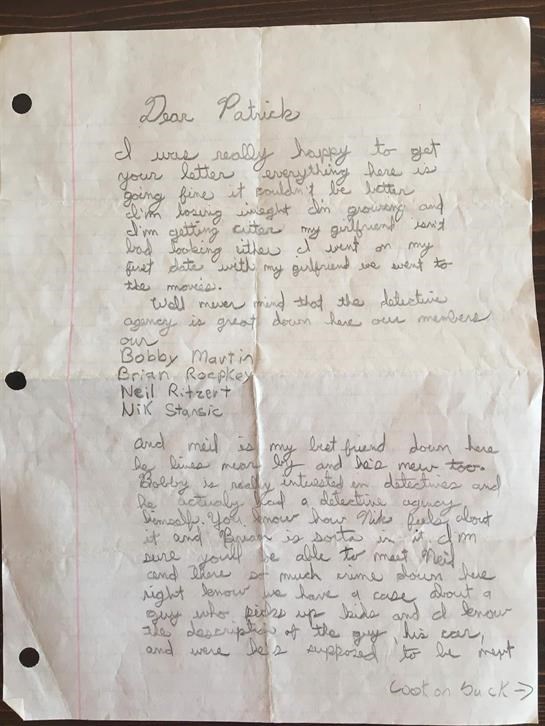 Dear Patrick
I was really happy to get
your letter everything here is
going fine it couldn't be better
I'm losing weight I'm growing and
I'm getting cuter my girlfriend isn't
bad looking either I went on my
first date with my girlfriend we went to
the movies.
Well never mind that the detective
agency is great down here our members
our
Bobby Martin
Brian Roepkey
Neil Ritzert
Nik Stansic
and neil is my best friend down here
he lives near by and he's new too.
Bobby is really intrested in detectives and
he actualy had a detective agency
himself. You know how Nik feels about
it and Brian is sorta in it I'm
sure you'll be able to meet Neil
and there so much crime down here
right know we have a case about a
guy who picks up kids and I know
the description of the guy, his car,
and were he's supposed to be next
Look on back →